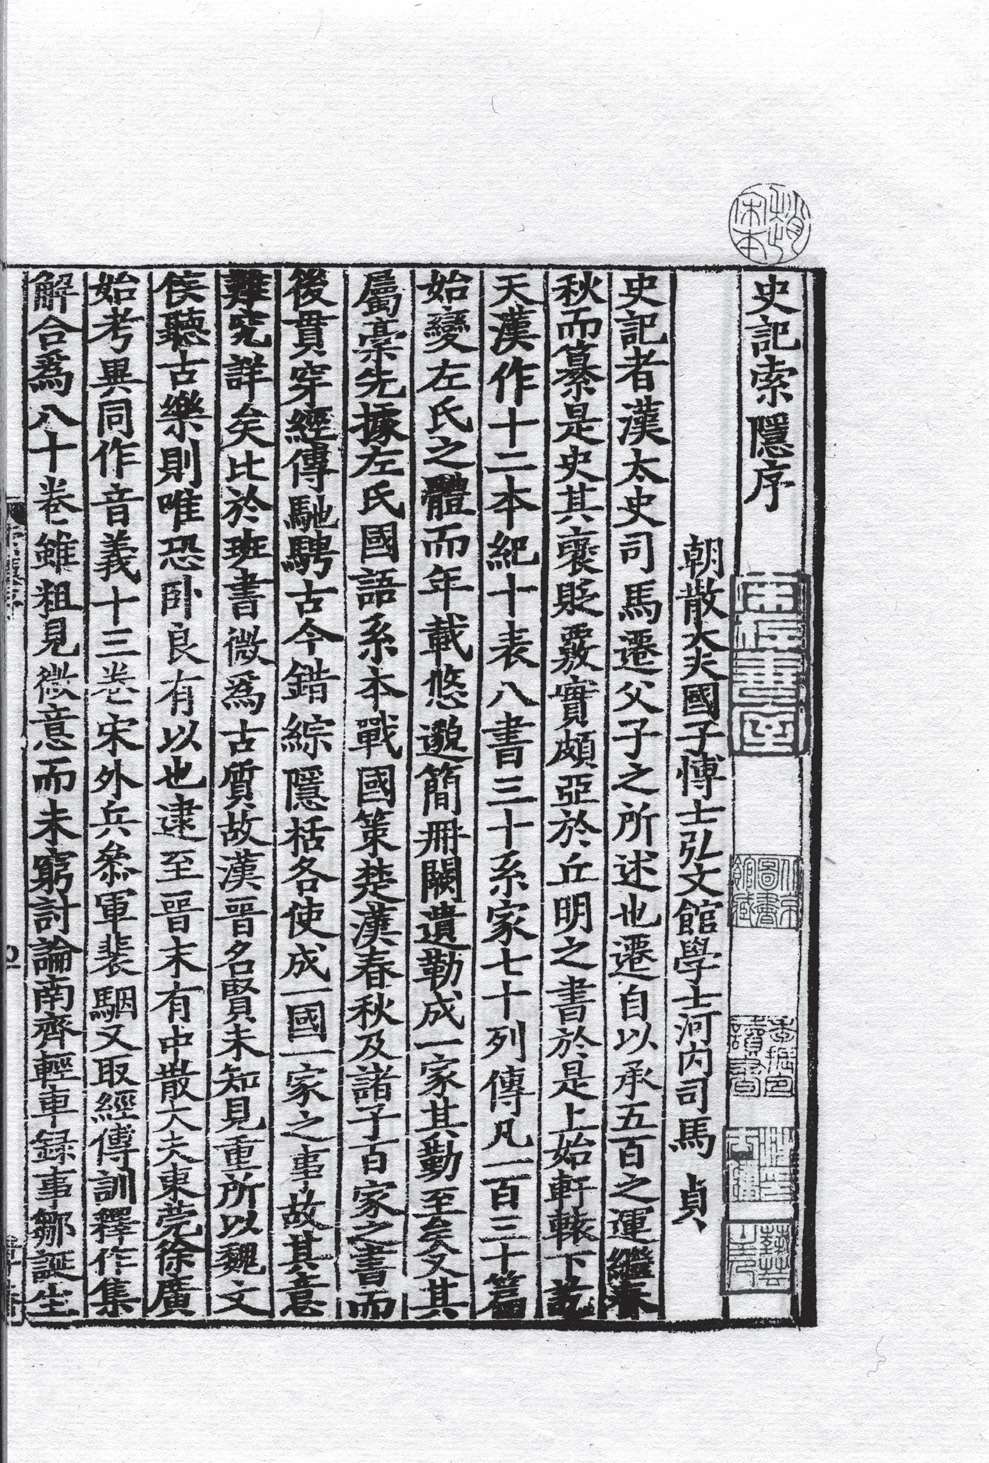 史記索隱序
朝散大夫國子愽士弘文館學士河內司馬貞
史記者漢太史司馬遷父子之所述也遷自以承五百之運繼春
秋而纂是史其襃貶覈實頗亞於丘明之書於是上始軒轅下訖
天漢作十二本紀十表八書三十系家七十列傳凡一百三十篇
始變左氏之體而年載悠邈簡冊闕遺勒成一家其勤至矣又其
屬稾先據左氏國語系本戰國策楚漢春秋及諸子百家之書而
後貫穿經傳馳騁古今錯綜隱括各使成一國一家之事故其意
難究詳矣比於班書微爲古質故漢晉名賢未知見重所以魏文
侯聽古樂則唯恐臥良有以也逮至晉末有中散大夫東莞徐廣
始考異同作音義十三卷宋外兵叅軍裴駰又取經傳訓釋作集
解合爲八十卷雖粗見微意而未窮討論南齊輕車録事鄒誕生